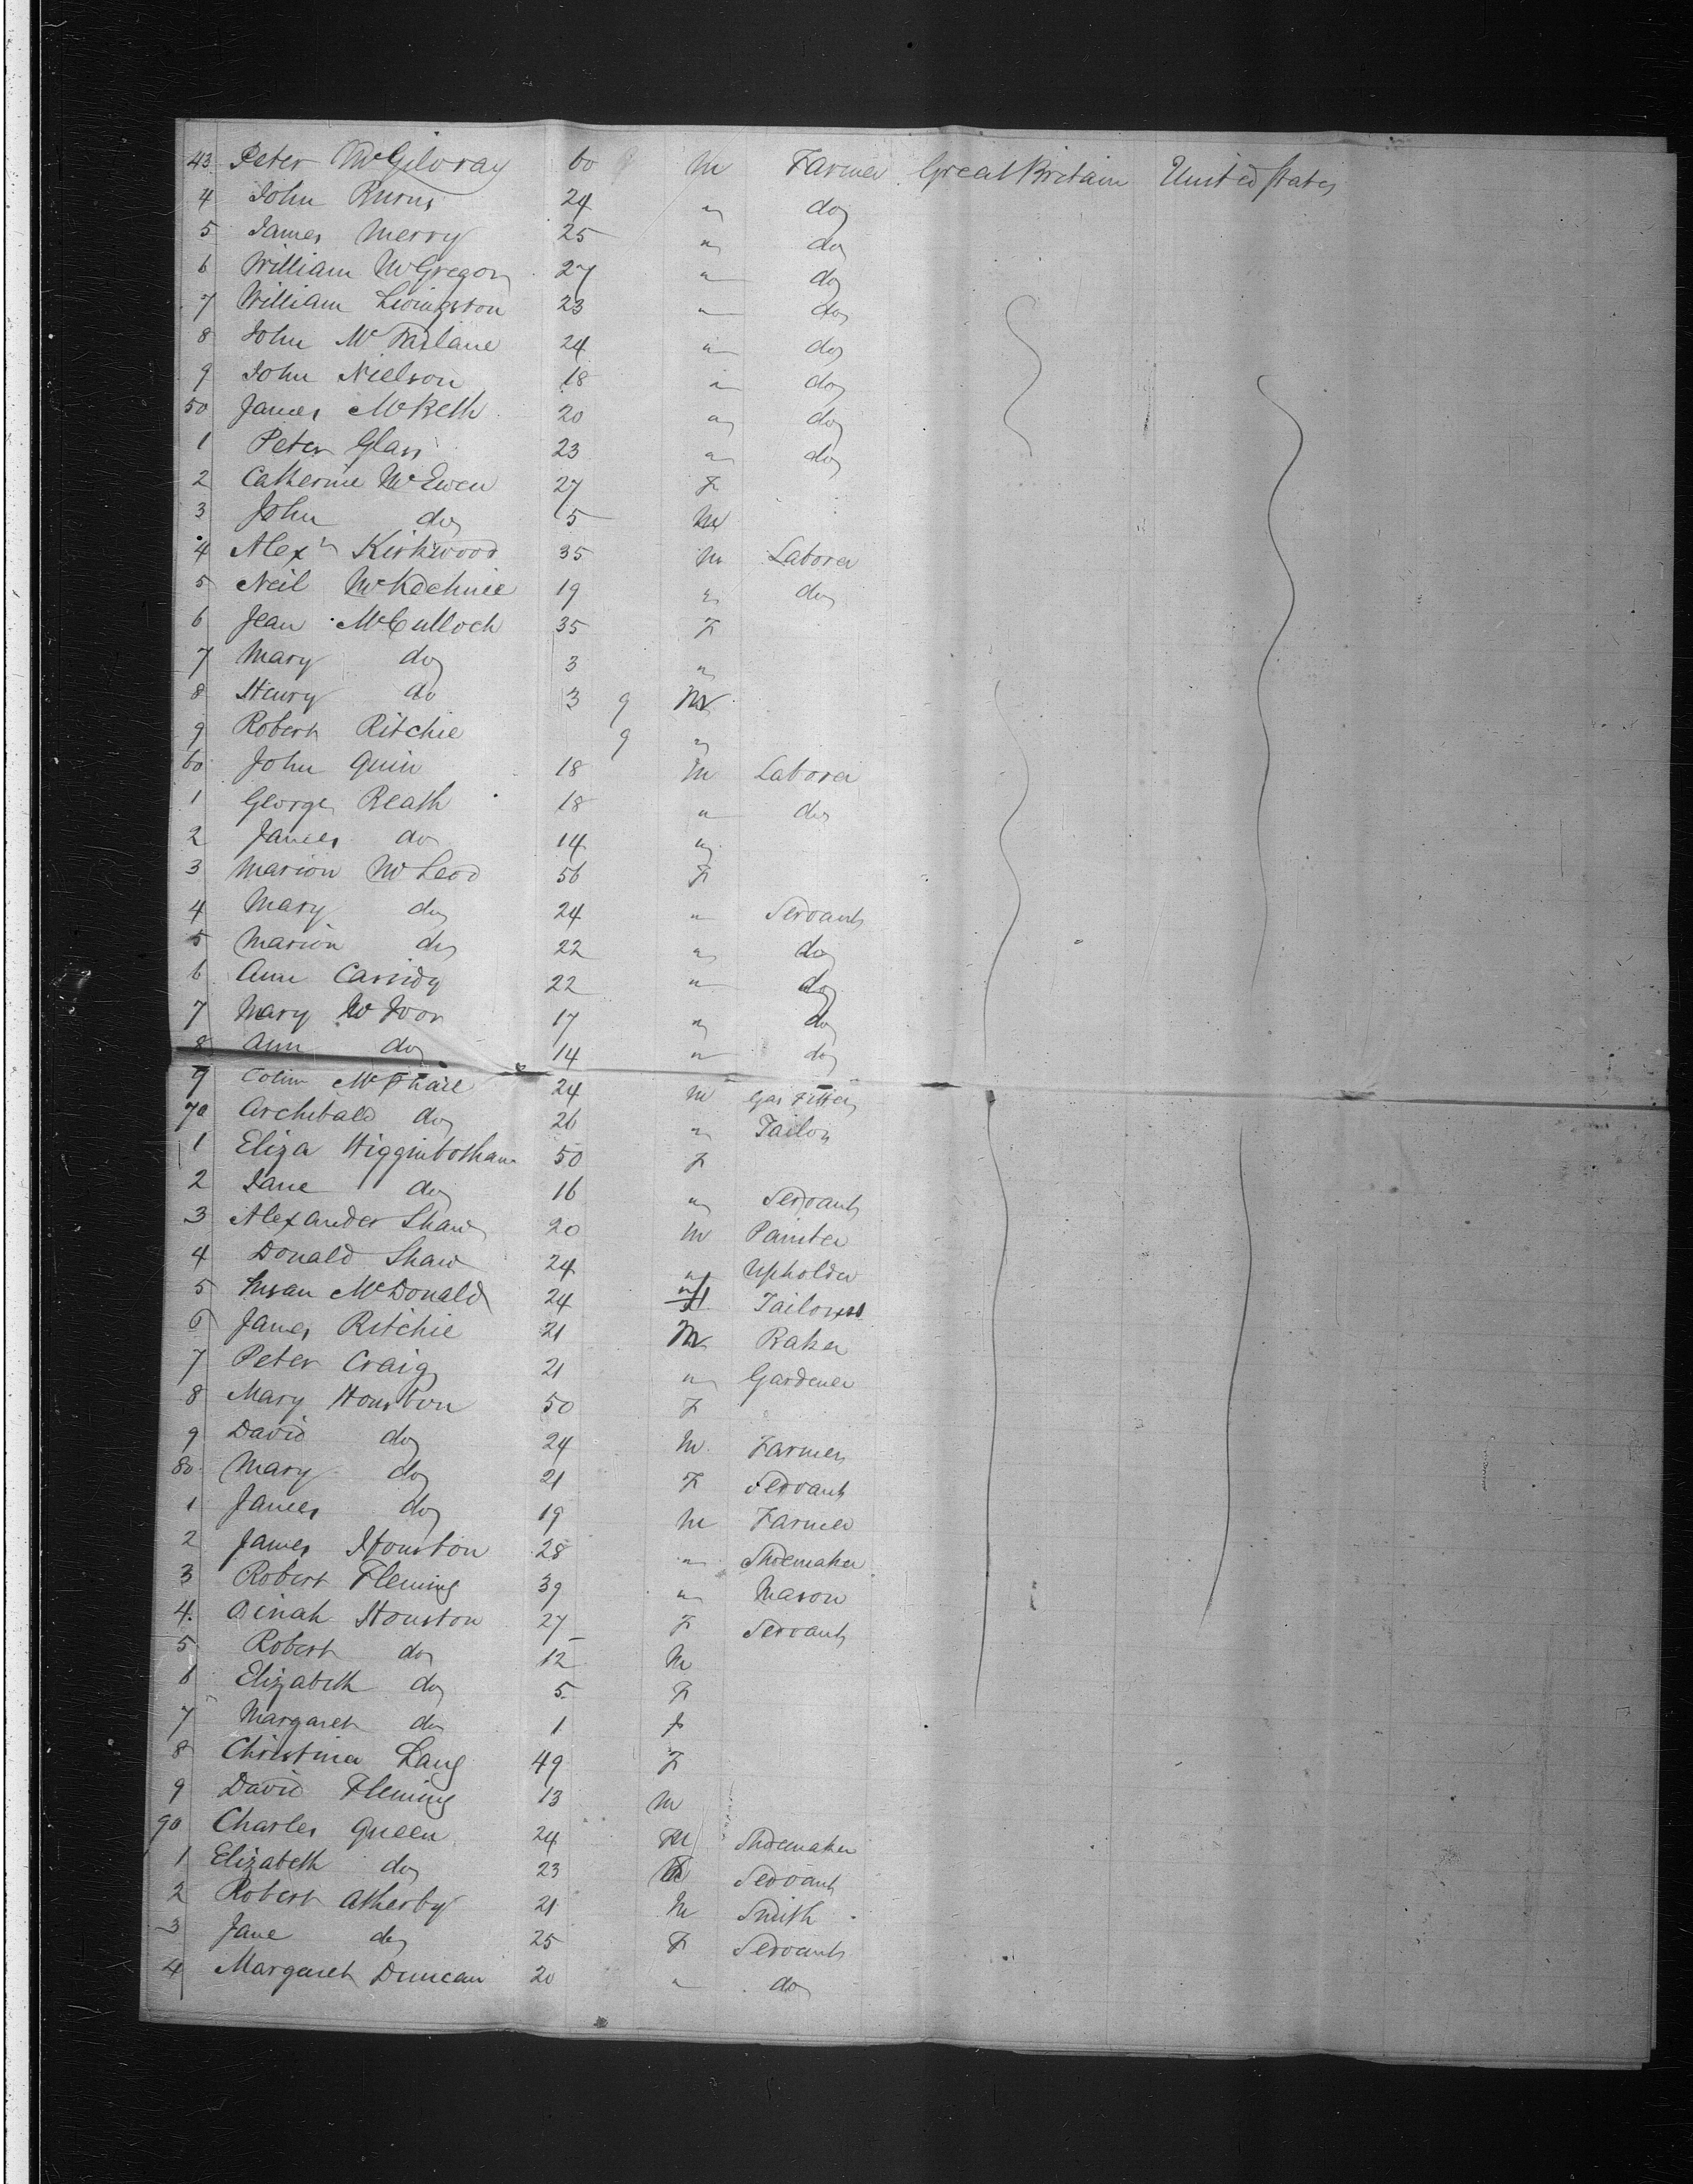 43 Peter McGilvray 60 M Farmer Great Britain United States
4 John Burns 24 " do
5 James Merry 25 " do
6 William McGregor 27 " do
7 William Livingston 23 " do
8 John McFarlane 24 " do
9 John Nielson 18 " do
50 James McBeth 20 " do
1 Peter Glass 23 " do
2 Catherine McEwen 27 F
3 John do 5 M
4 Alexr Kirkwood 35 M Laborer
5 Neil McKechnie 19 " do
6 Jean McCulloch 35 F
7 Mary do 3 "
8 Henry do 3 9 M
9 Robert Ritchie 9 "
60 John Quin 18 M Laborer
1 George Reath 18 " do
2 James do 14 "
3 Marion McLeod 56 F
4 Mary do 24 " Servant
5 Marion do 22 " do
6 Ann Cassidy 22 " do
7 Mary 17 " do
8 Ann do 14 " do
9 Colin McPhail 24 M Gas Fitter
70 Archibald do 26 " Tailor
1 Eliza Higginbotham 50 F
2 Jane do 16 " Servant
3 Alexander Shaw 20 M Painter
4 Donald Shaw 24 " Upholder
5 Susan McDonald 24 F Tailoress
6 James Ritchie 21 M Baker
7 Peter Craig 21 " Gardener
8 Mary Houston 50 F
9 David do 24 M Farmer
80 Mary do 21 F Servant
1 James do 19 M Farmer
2 James Houston 28 " Shoemaker
3 Robert Fleming 39 " Mason
4. Dinah Houston 27 F Servant
5 Robert do 12 M
6 Elizabeth do 5 F
7 Margaret do 1 F
8 Christina Lang 49 F
9 David Fleming 13 M
90 Charles Queen 24 M Shoemaker
1 Elizabeth do 23 Servant
2 Robert Atherby 21 M Smith
3 Jane do 25 F Servant
4 Margaret Duncan 20 " do